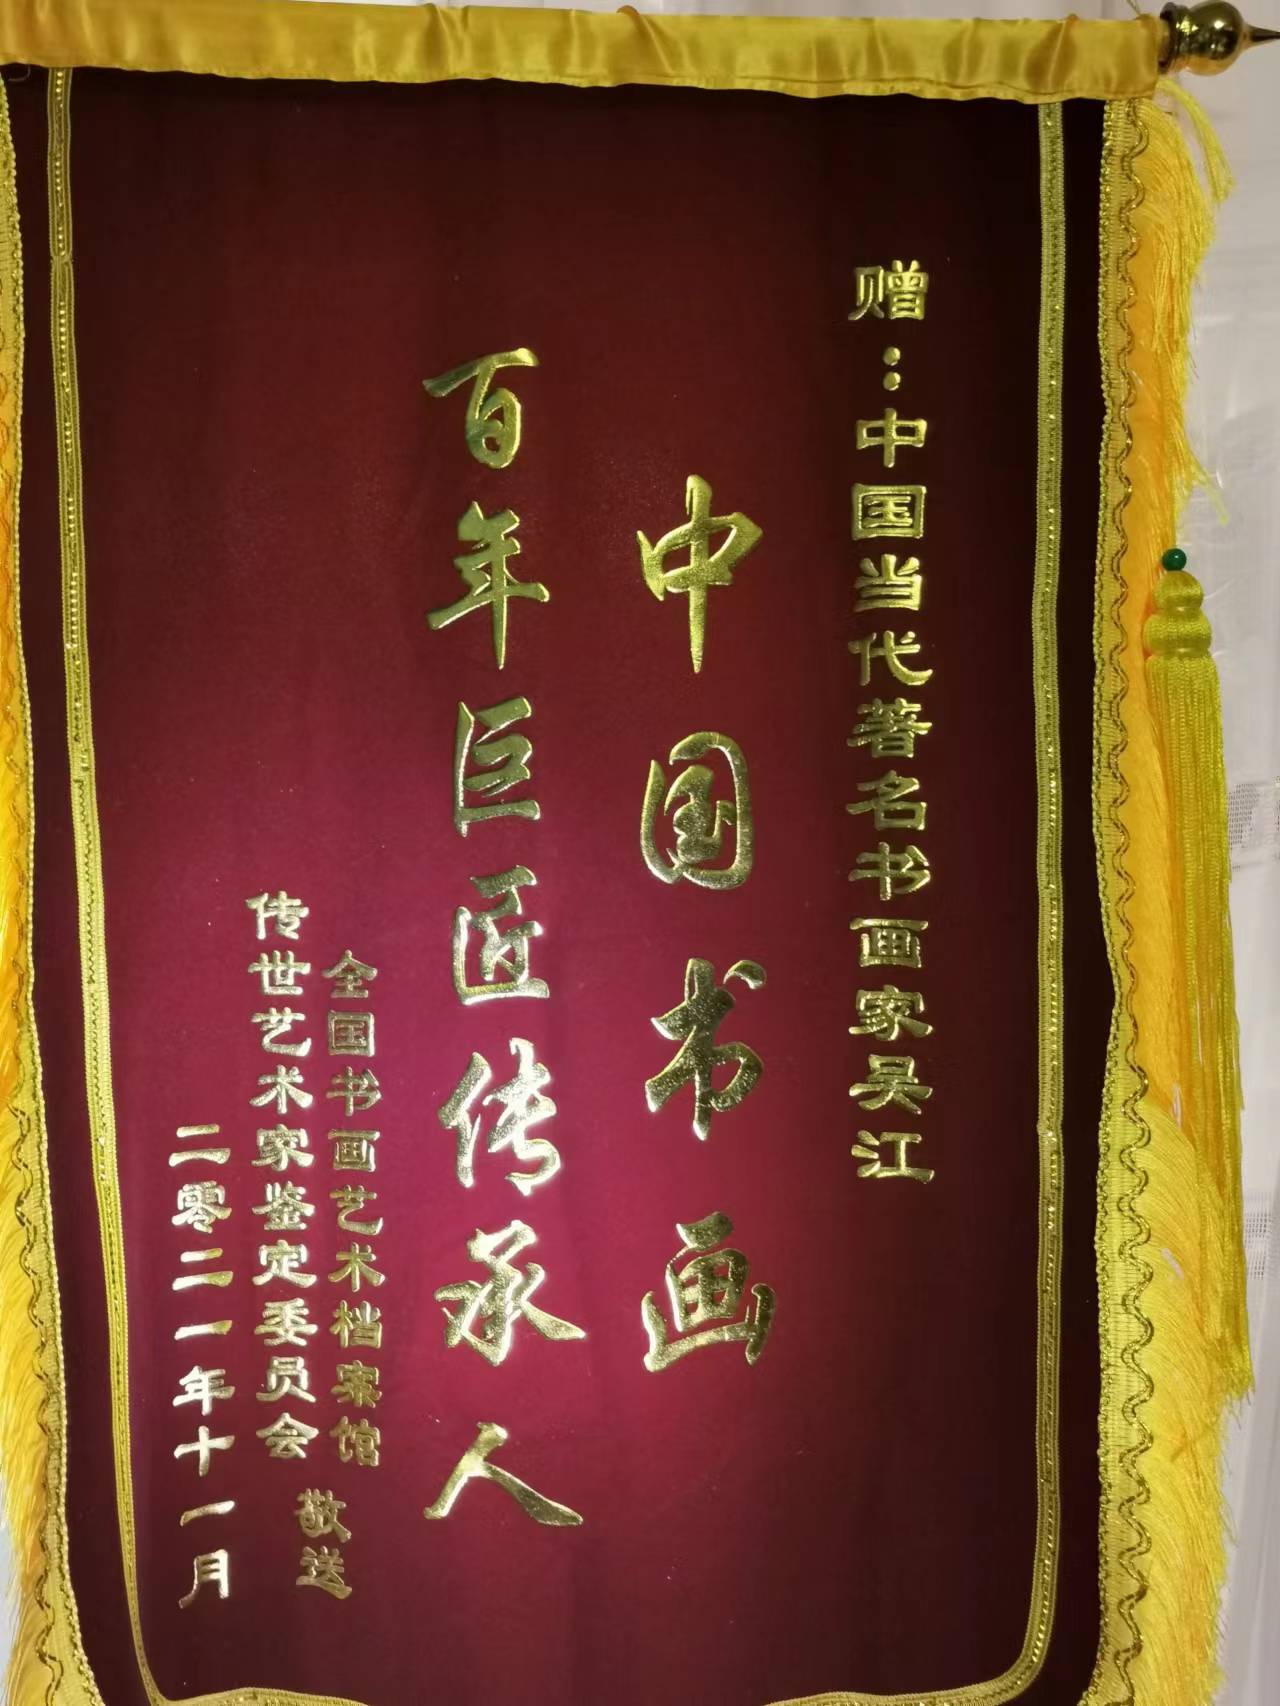 赠：中国当代著名书画家吴江
中国书画
百年巨匠传承人
全国书画艺术档案馆
传世艺术家鉴定委员会
敬送
二零二一年十一月